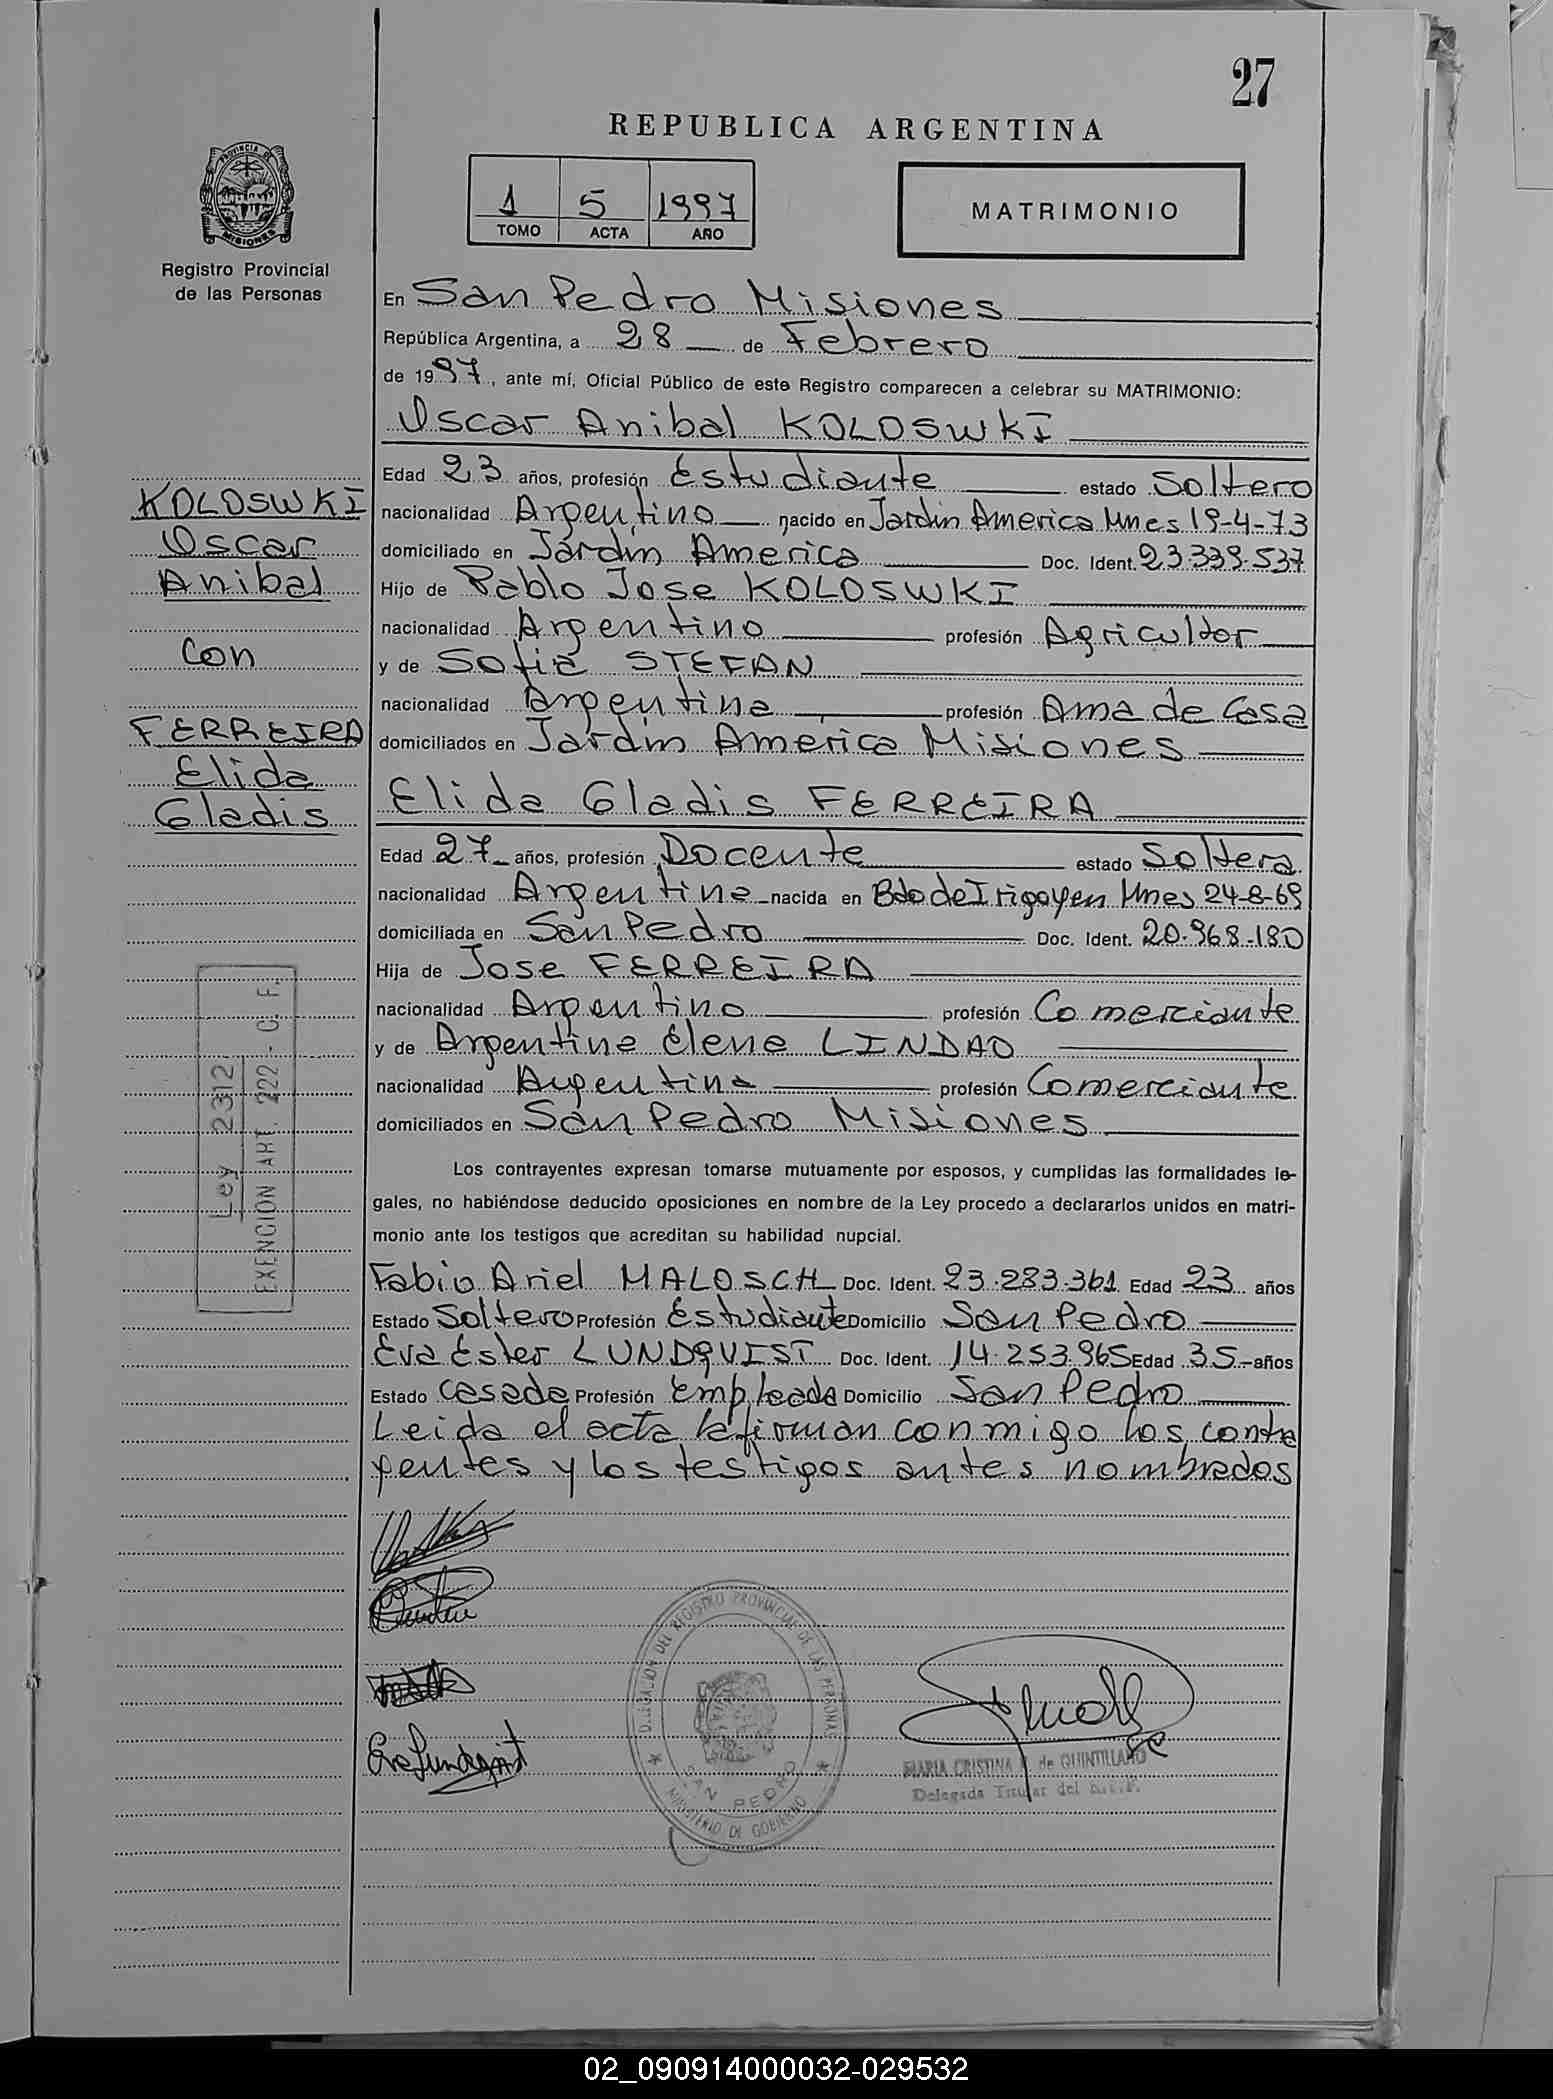 27
REPUBLICA ARGENTINA
1 5 1997
TOMO ACTA AÑO
MATRIMONIO
PROVINCIA DE
MISIONES
Registro Provincial
de las Personas
En San Pedro Misiones
República Argentina, a 28 de Febrero
de 1997, ante mí, Oficial Público de este Registro comparecen a celebrar su MATRIMONIO:
Oscar Anibal KOLOSWKI
Edad 23 años, profesión Estudiante estado Soltero
nacionalidad Argentino nacido en Jardin America Mnes 19-4-73
domiciliado en Jardin America Doc. Ident. 23.339.537
Hijo de Pablo Jose KOLOSWKI
nacionalidad Argentino profesión Agricultor
y de Sofia STEFAN
nacionalidad Argentina profesión Ama de Casa
domiciliados en Jardin America Misiones
KOLOSWKI
Oscar
Anibal
con
FERREIRA
Elida
Gladis
Elida Gladis FERREIRA
Edad 27 años, profesión Docente estado Soltera
nacionalidad Argentina nacida en Bdo de Irigoyen Mnes 24-8-69
domiciliada en San Pedro Doc. Ident. 20.968.180
Hija de Jose FERREIRA
nacionalidad Argentino profesión Comerciante
y de Argentina Elena LINDAO
nacionalidad Argentina profesión Comerciante
domiciliados en San Pedro Misiones
Ley 2312
EXENCION ART. 222 - C. F.
Los contrayentes expresan tomarse mutuamente por esposos, y cumplidas las formalidades le-
gales, no habiéndose deducido oposiciones en nombre de la Ley procedo a declararlos unidos en matri-
monio ante los testigos que acreditan su habilidad nupcial.
Fabio Ariel MALOSCH Doc. Ident. 23.283.361 Edad 23 años
Estado Soltero Profesión Estudiante Domicilio San Pedro
Eva Ester LUNDQVIST Doc. Ident. 14.253.965 Edad 35.- años
Estado Casada Profesión Empleada Domicilio San Pedro
Leida el acta la firman conmigo los contra
yentes y los testigos antes nombrados
Eva Lundqvist
DELEGACION DEL REGISTRO PROVINCIAL DE LAS PERSONAS
SAN PEDRO
MINISTERIO DE GOBIERNO
MARIA CRISTINA de QUINTILLANO
Delegada Titular del
02_090914000032-029532